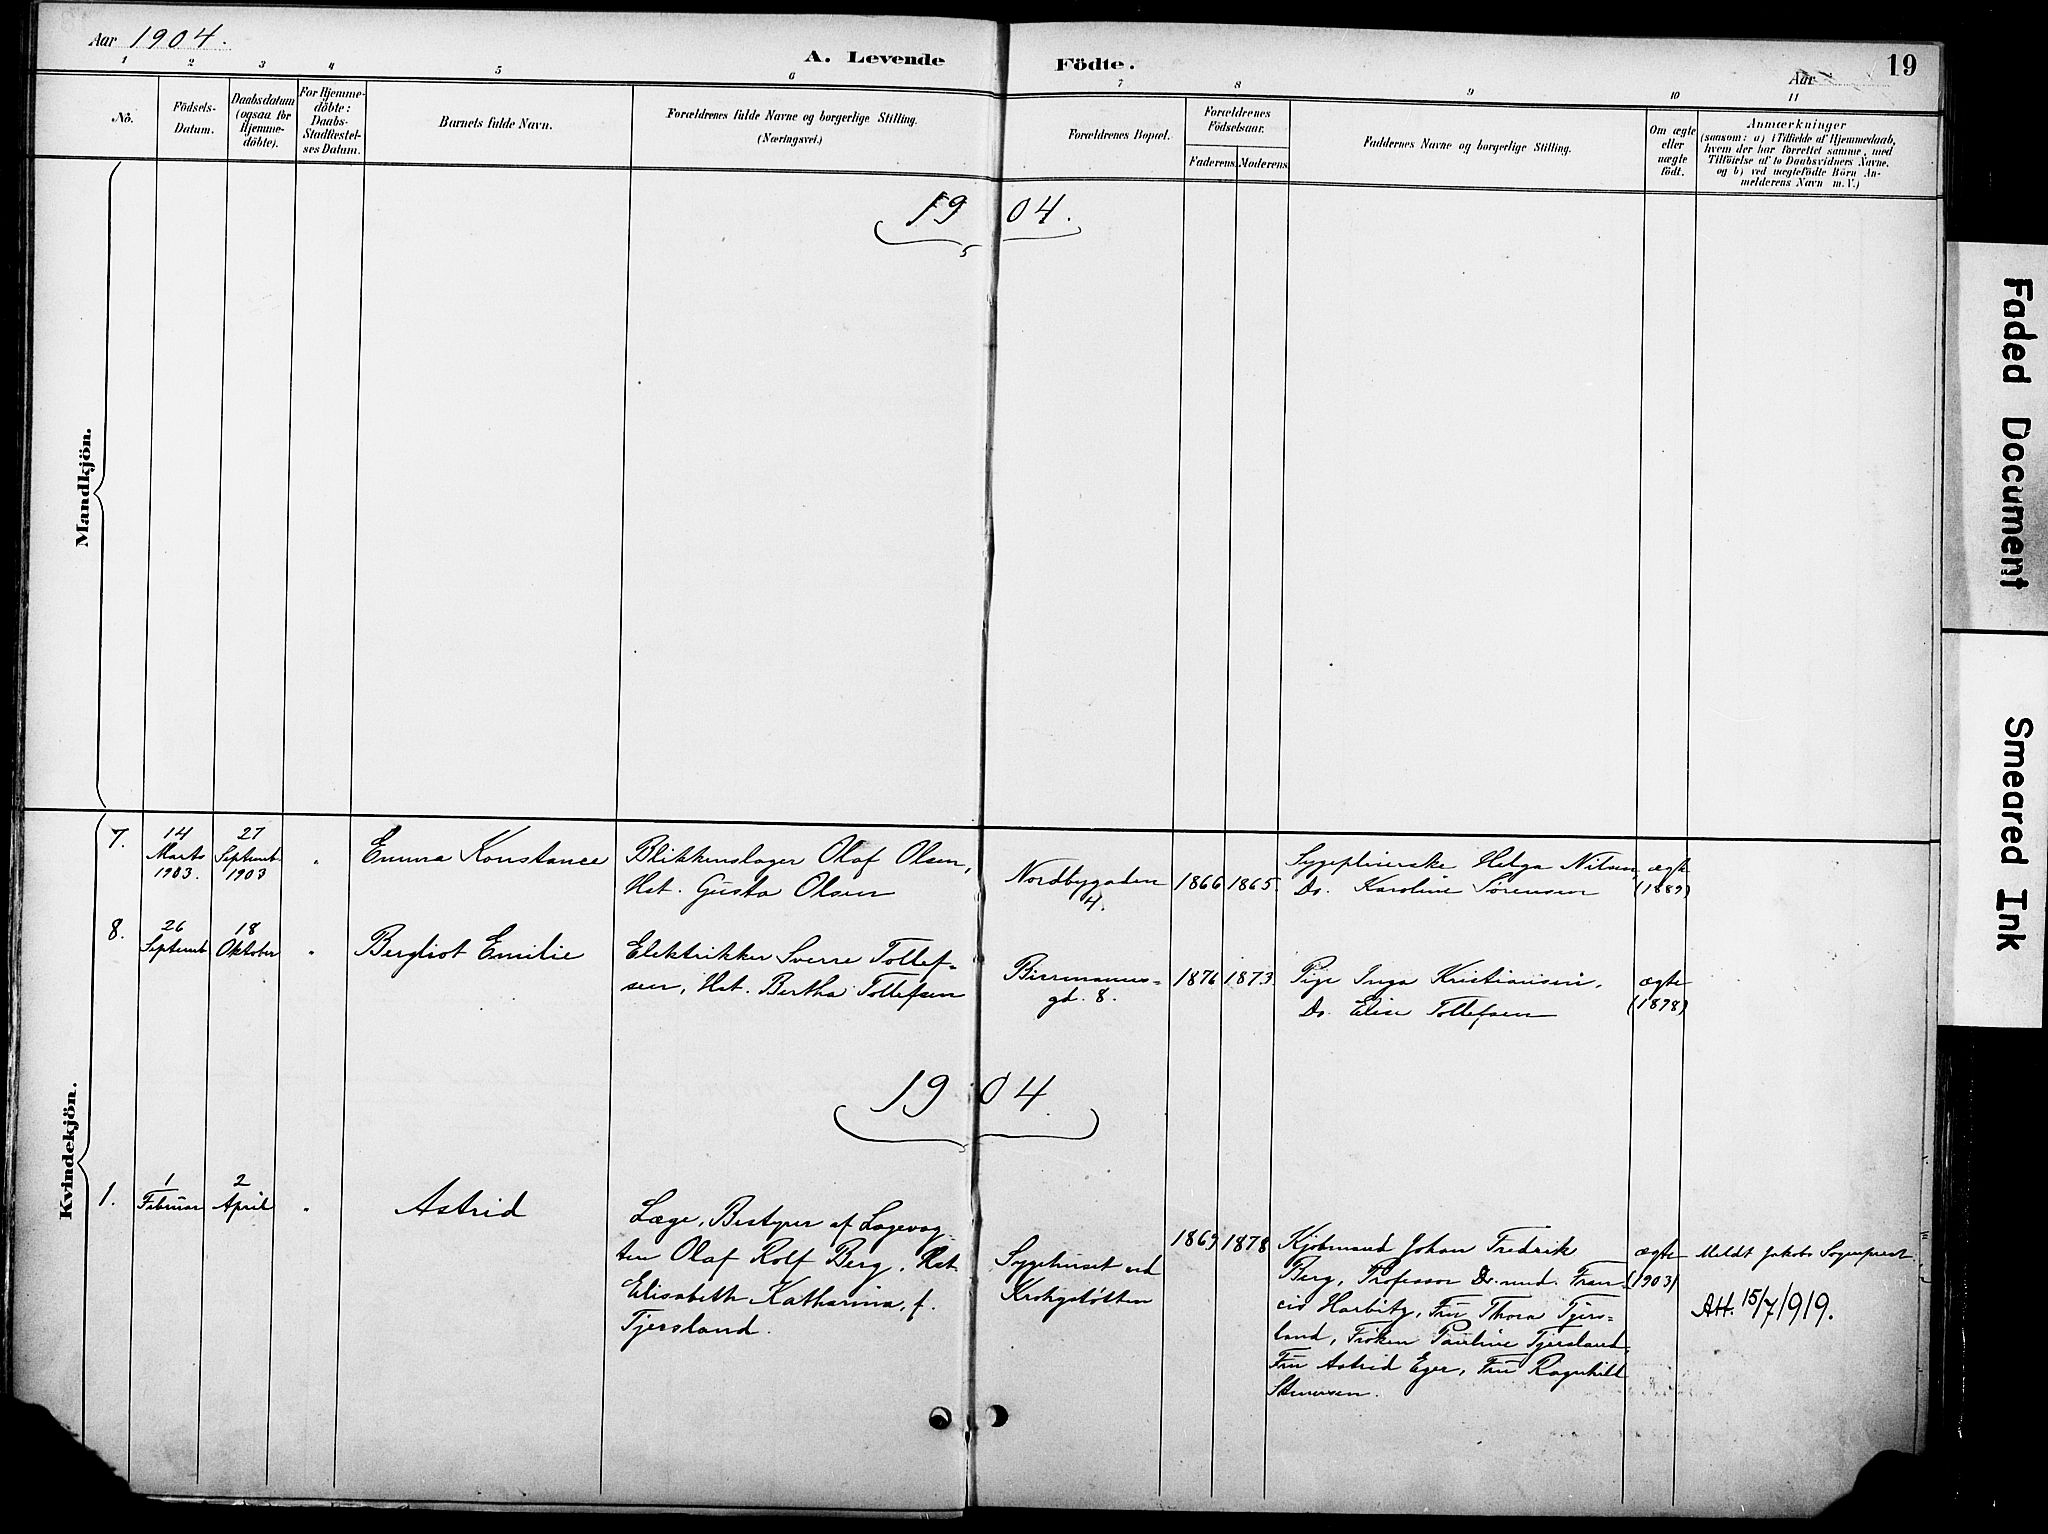 Aar 1904.
A. Levende Födte.
Aar
19
1 2 3 4 5 6 7 8 9 10 11
No.
Födsels-
Datum.
Daabsdatum
(ogsaa for
Hjemme-
döbte).
For Hjemme-
döbte:
Daabs-
Stadfæstel-
ses Datum.
Barnets fulde Navn.
Forældrenes fulde Navne og borgerlige Stilling.
(Næringsvei.)
Forældrenes Bopæl.
Forældrenes
Födselsaar.
Faderens. Moderens.
Faddernes Navne og borgerlige Stilling.
Om ægte
eller
uægte
födt.
Anmærkninger
(saasom: a) i Tilfælde af Hjemmedaab,
hvem der har forrettet samme, med
Tilföielse af to Daabsvidners Navne.
og b) ved uægtefödte Börn An-
melderens Navn m.V.)
Mandkjön.
1904.
Kvindekjön.
7.
14
Marts
1903.
27
Septemb.
1903
"
Emma Konstance
Blikkenslager Olaf Olsen,
Hst. Gusta Olsen
Nordbygaden
4.
1866 1865.
Sygepleierske Helga Nilsen,
Do. Karoline Sørensen
ægte
(1889)
8.
26
Septemb
18
Oktober
"
Bergliot Emilie
Elektrikker Sverre Tollef-
sen, Hst. Bertha Tollefsen
gd. 8.
1876 1873.
Pige Inga Kristiansen.
Do. Elise Tollefsen
ægte
(1898)
1904.
1.
1
Februar
2
April
"
Astrid
Læge, Bestyrer af Lægevag-
ten Olaf Rolf Berg, Hst.
Elisabeth Katharina, f.
Tjersland.
Sygehuset ved
Krohgstøtten
1869 1878
Kjøbmand Johan Fredrik
Berg, Professor Dr. med. Fran-
cis Harbitz, Fru Thora Tjers-
land, Frøken Pauline Tjersland,
Fru Astrid Eger, Fru Ragnhild
Stenersen.
ægte
(1903)
Meldt Jakobs Sogneprest.
Att. 15/7/919.
Faded Document
Smeared Ink